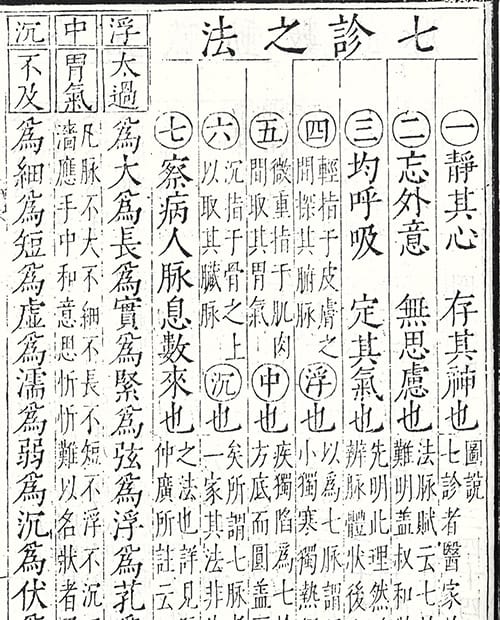 七診之法
一靜其心 存其神也
圖說
七診者醫家
二忘外意 無思慮也
法脉賦云七
難明盖叔和
三均呼吸 定其氣也
先明此理然
辨脉體狀後
四輕指于皮膚之
間探其腑脉浮也
以爲七脉謂
小獨寒獨熱
五微重指于肌肉
間取其胃氣中也
疾獨陷爲七
方底而圓盖
六沉指于骨之上
以取其臟脉沉也
矣所謂七脉者
一家其法非
七察病人脉息數來也
之法也詳見
仲廣所註云
浮 太過
爲大爲長爲實爲緊爲弦爲浮爲芤
中 胃氣
凡脉不大不細不長不短不浮不沉
濇應手中和意思忻忻難以名狀者
沉 不及
爲細爲短爲虛爲濡爲弱爲沉爲伏